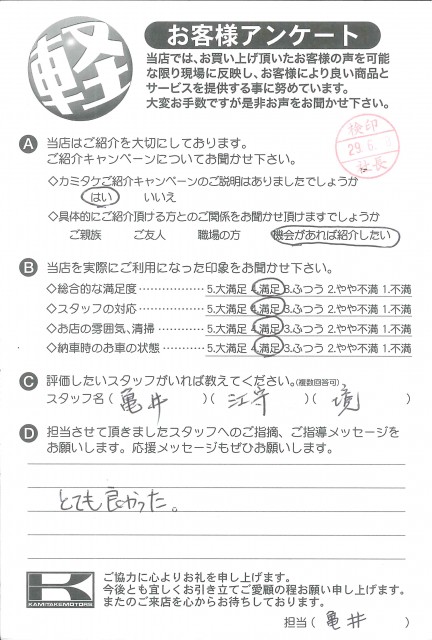 軽
お客様アンケート
当店では、お買い上げ頂いたお客様の声を可能
な限り現場に反映し、お客様により良い商品と
サービスを提供する事に努めています。
大変お手数ですが是非お声をお聞かせ下さい。
検印
29.6.
社長
A 当店はご紹介を大切にしております。
ご紹介キャンペーンについてお聞かせ下さい。
◇カミタケご紹介キャンペーンのご説明はありましたでしょうか
はい いいえ
◇具体的にご紹介頂ける方とのご関係をお聞かせ頂けますでしょうか
ご親族 ご友人 職場の方 機会があれば紹介したい
B 当店を実際にご利用になった印象をお聞かせ下さい。
◇総合的な満足度 …………… 5.大満足 4.満足 3.ふつう 2.やや不満 1.不満
◇スタッフの対応 …………… 5.大満足 4.満足 3.ふつう 2.やや不満 1.不満
◇お店の雰囲気、清掃 ……… 5.大満足 4.満足 3.ふつう 2.やや不満 1.不満
◇納車時のお車の状態 ……… 5.大満足 4.満足 3.ふつう 2.やや不満 1.不満
C 評価したいスタッフがいれば教えてください。(複数回答可)
スタッフ名 ( 亀井 )( 江守 )( 境 )
D 担当させて頂きましたスタッフへのご指摘、ご指導メッセージを
お願いします。応援メッセージもぜひお願いします。
とても良かった。
KAMITAKEMOTORS
ご協力に心よりお礼を申し上げます。
今後とも宜しくお引き立てご愛顧の程お願い申し上げます。
またのご来店を心からお待ちしております。
担当 ( 亀井 )